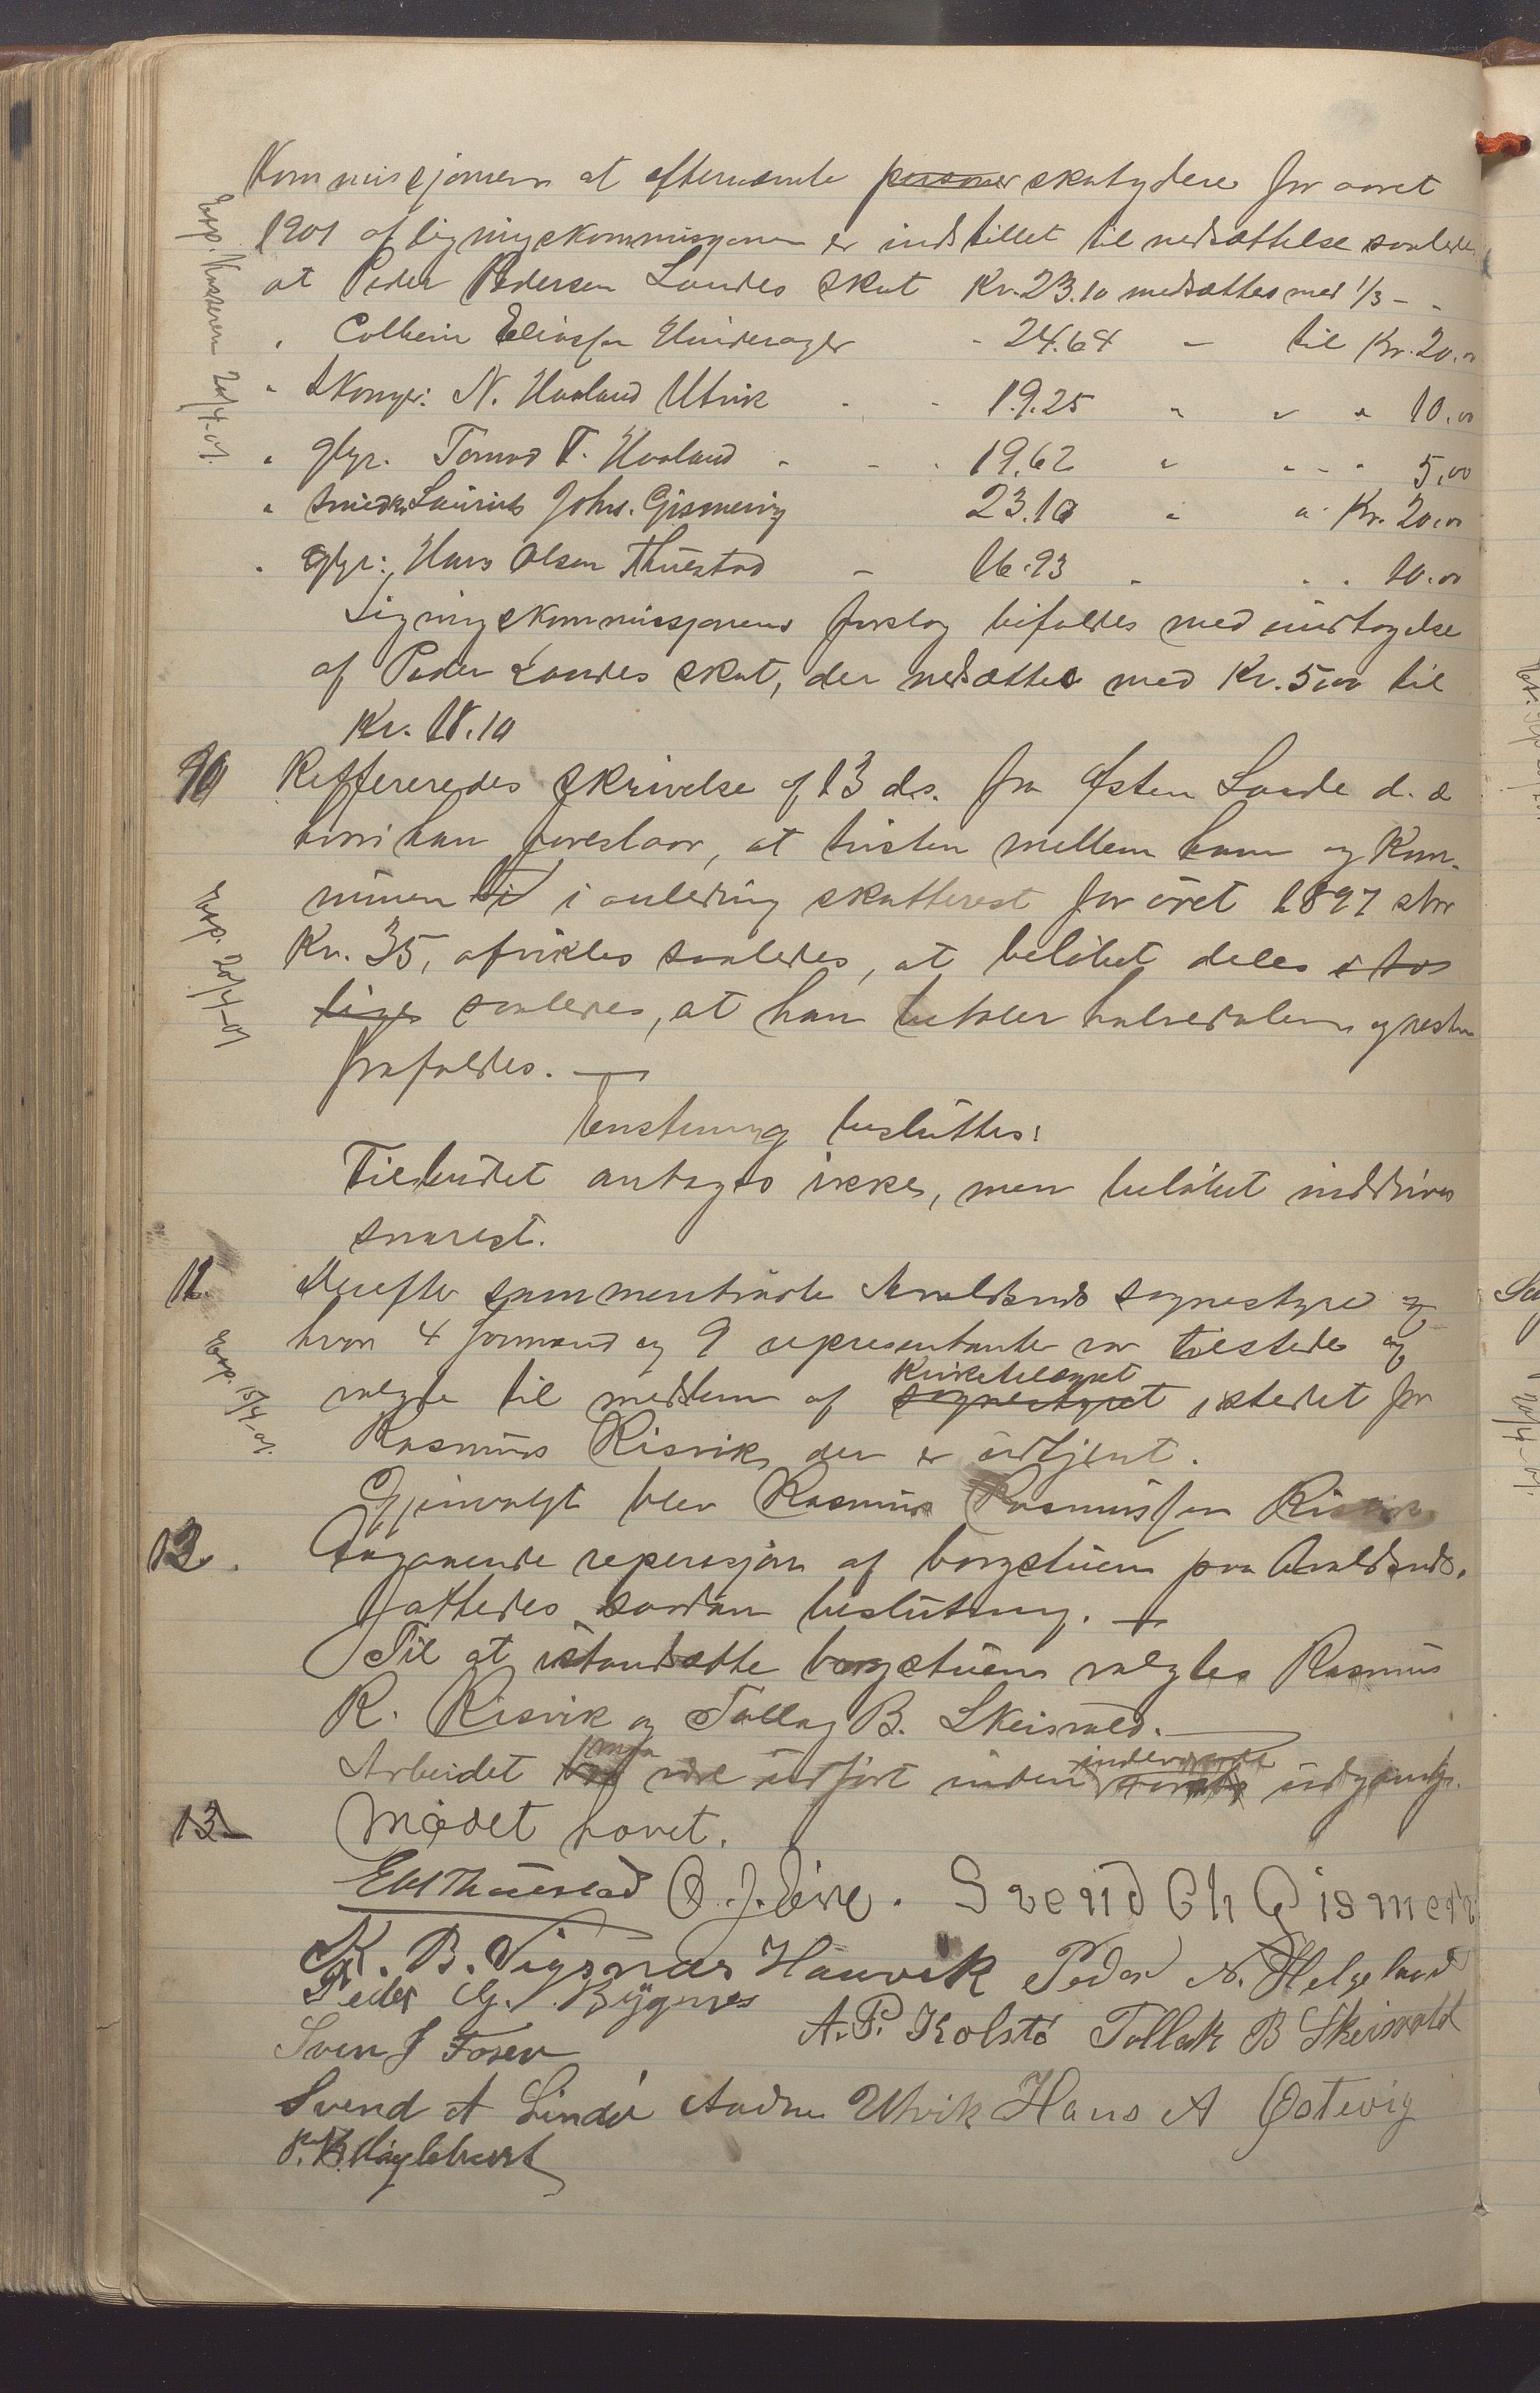 Kommissjonen at efternævnte personer skatydere for aaret
1901 af ligningskommissjonen er indstillet til nedsættelse saaledes
at Peder Pedersen Landes skat Kr. 23.10 nedsættes med 1/3 - -
" Colbein Eliassen - 24.64 - til Kr. 20.00
" N. Haaland Utvik - - 19.25 " " " 10.00
" gbr. Tormod T. Haaland - - - 19.62 " - - - 5.00
" Smed Laurits Johs. Gismervig 23.10 " " Kr. 20.00
" gbr: Hans Olsen Thuestad - 16.93 - . . 10.00
Ligningskommissjonens forslag bifaldes med undtagelse
af Peder Landes skat, der nedsættes med Kr. 5.00 til
Kr. 18.10
Exp. Kasseren 20/4-01.
10 Reffereredes skrivelse af 13 ds. fra Østen Lande d. æ
hvori han foreslaar, at tvisten mellem ham og Kom-
munen i anledning skatterest for året 1897 stor
Kr. 35, afvikles saaledes, at beløbet deles i to
lige saaledes, at han betaler halvedelen og resten
frafaldes. —
Exp. 20/4-01
Enstemmig besluttes:
Tilbudet antages ikke, men beløbet inddrives
snarest.
11. Derefter sammentraadte Avaldsnes sognestyre og
hvor 4 formænd og 9 representanter var tilstede og
Kirketilsynet
valgte til medlem af sognestyret istedet for
Rasmus Risvik, der er udtjent.
Exp. 15/4-01.
Gjenvalgt blev Rasmus Rasmussen Risvik
12. Angaaende reperasjon af borgstuen paa Avaldsnes.
fattedes saadan beslutning. —
Til at istandsætte borgstuen valgtes Rasmus
R. Risvik og Tollag B. Skeisvold. —
maa indeværende
Arbeidet være udført inden udgang.
13. Mødet hævet.
E W Thuestad O. J. Eive. Svend Ch Gismervi
K. B. Vigsnæs Hauvik Peder N. Helgeland
Peder G. Bygnes
A. P. Kolstø Tollak B Skeisvold
Sven J Fosen
Svend A Lindø Andreas Utvik Hans A Østevig